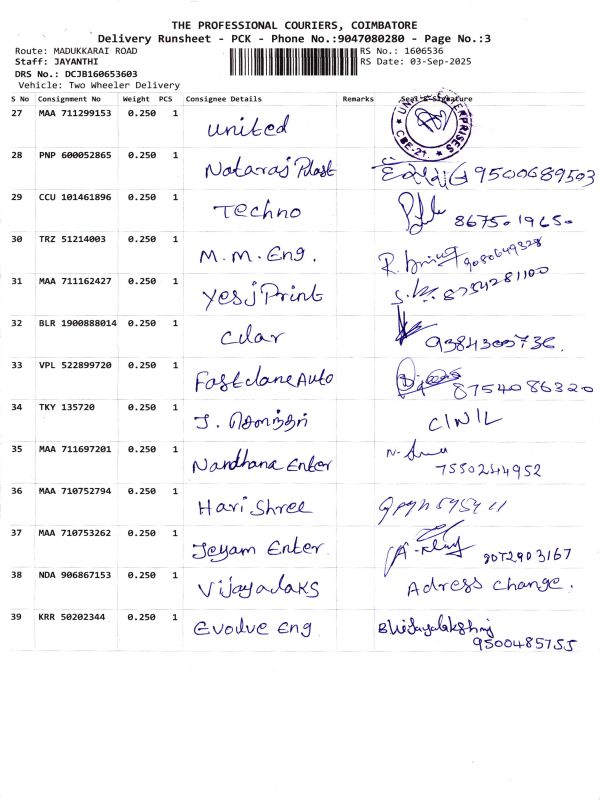 THE PROFESSIONAL COURIERS, COIMBATORE
Delivery Runsheet - PCK - Phone No.:9047080280 - Page No.:3
Route: MADUKKARAI ROAD RS No.: 1606536
Staff: JAYANTHI RS Date: 03-Sep-2025
DRS No.: DCJB160653603
Vehicle: Two Wheeler Delivery
S No Consignment No Weight PCS Consignee Details Remarks Seal & Signature
27 MAA 711299153 0.250 1 United ENTERPRISES CBE-21.
28 PNP 600052865 0.250 1 Nataraj Plast 9500689503
29 CCU 101461896 0.250 1 Techno
30 TRZ 51214003 0.250 1 M.M. Eng. 9080649328
31 MAA 711162427 0.250 1 Yesj Print 8754281100
32 BLR 1900888014 0.250 1 Cilar 9384300736.
33 VPL 522899720 0.250 1 Fastclane Auto 8754086320
34 TKY 135720 0.250 1 J. சௌந்தர் C/N/L
35 MAA 711697201 0.250 1 Nandhana Enter 7550244952
36 MAA 710752794 0.250 1 Hari Shree
37 MAA 710753262 0.250 1 Jeyam Enter. 8072903167
38 NDA 906867153 0.250 1 Vijayalaks Adress change.
39 KRR 50202344 0.250 1 Evolve Eng 9500485755